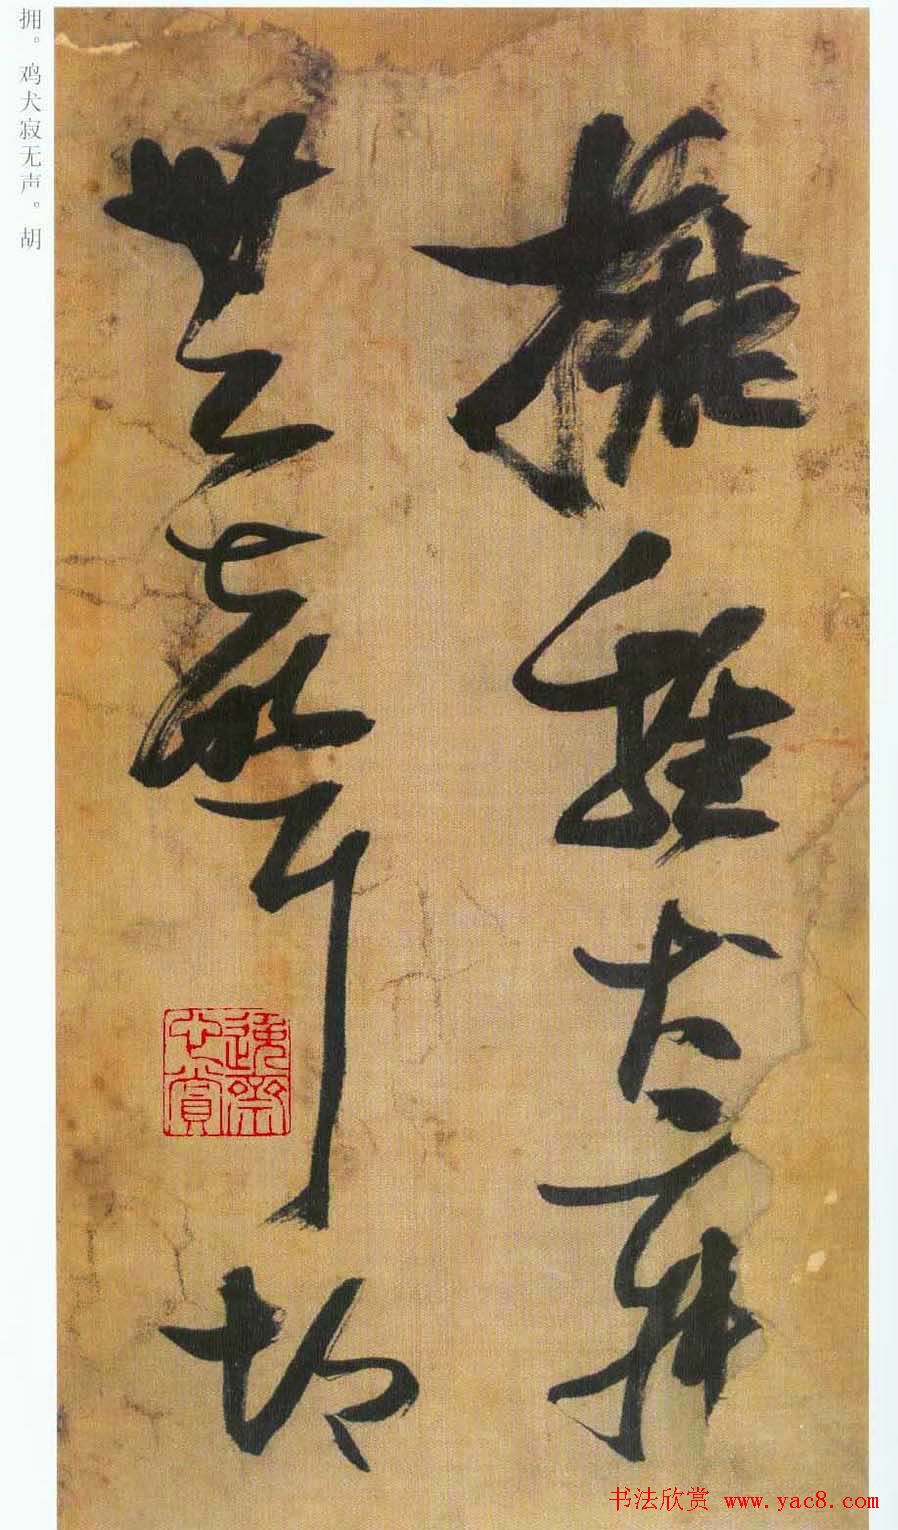 擁雞犬寂
無聲胡
拥。鸡犬寂无声。胡
书法欣赏 www.yac8.com